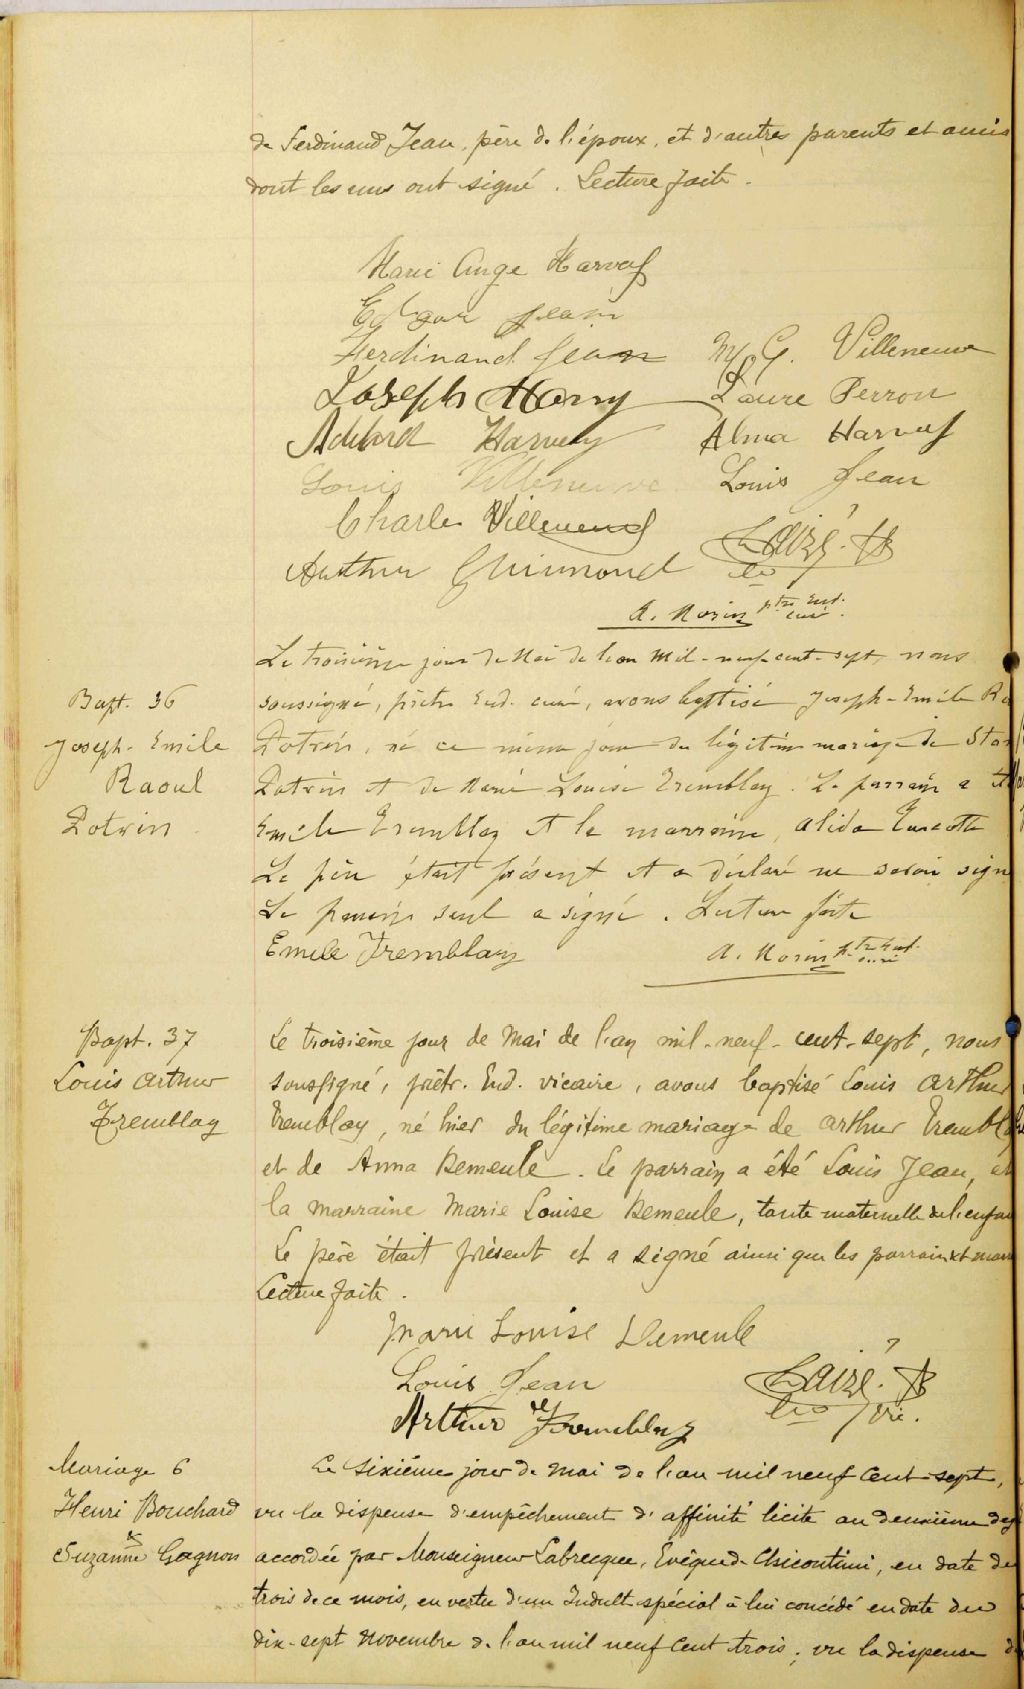 de Ferdinand Jean, père de l'époux, et d'autres parents et amis
dont les uns ont signé. Lecture faite.
Marie Ange Harvey
Edgar Jean
Ferdinand Jean M. G. Villeneuve
Joseph Harvy Laure Perron
Adélard Harvey Alma Harvey
Louis Villeneuve Louis Jean
Charles Villeneuve
Arthur Guimond
A. Morin ptre Eud. curé
Le troisième jour de Mai de l'an mil-neuf-cent-sept, nous
Bapt. 36
soussigné, prêtre Eud. curé, avons baptisé Joseph-Emile Ra
Joseph-Emile
Raoul
Potvin
Potvin, né ce même jour du légitime mariage de Stan
Potvin et de Marie Louise Tremblay. Le parrain a été
Emile Tremblay et la marraine, Alida Turcotte
Le père était présent et a déclaré ne savoir sign
Le parrain seul a signé. Lecture faite
Emile Tremblay A. Morin ptre Eud. curé
Bapt. 37
Louis Arthur
Tremblay
Le troisième jour de Mai de l'an mil-neuf-cent-sept, nous
soussigné, prêtr. Eud. vicaire, avons baptisé Louis Arthur
Tremblay, né hier du légitime mariage de Arthur Trembla
et de Anna Demeule. Le parrain a été Louis Jean, et
la marraine Marie Louise Demeule, tante maternelle de l'enfan
Le père était présent et a signé ainsi que les parrain et marr
Lecture faite.
Marie Louise Demeule
Louis Jean
Arthur Tremblay
Mariage 6
Henri Bouchard
&
Suzanne Gagnon
Le sixième jour de mai de l'an mil neuf cent sept,
vu la dispense d'empêchement d'affinité licite au deuxième deg
accordée par Monseigneur Labrecque, Evêque de Chicoutimi, en date du
trois de ce mois, en vertu d'un Indult spécial à lui concédé en date du
dix-sept Novembre de l'an mil neuf cent trois; vu la dispense d